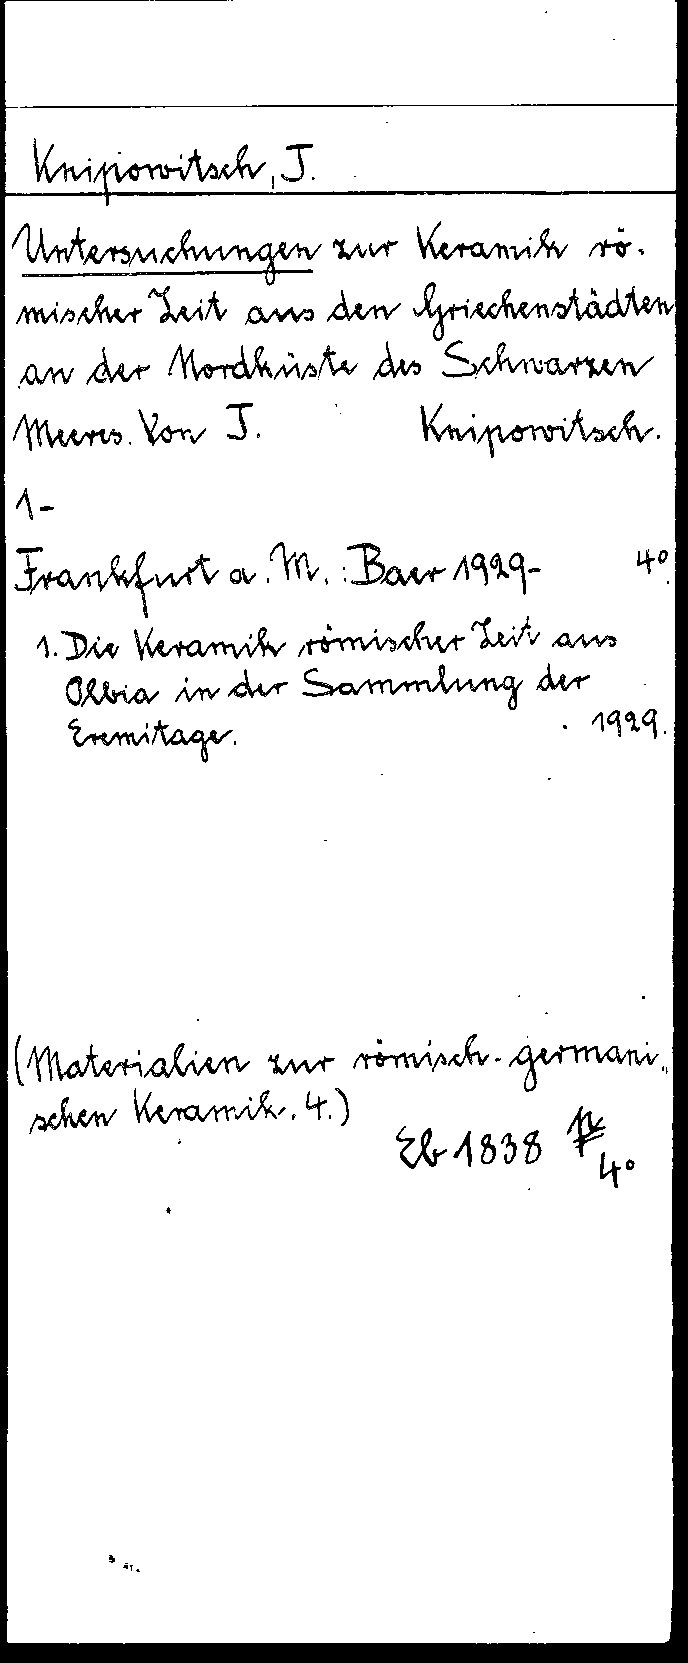 Knipowitsch, J.
Untersuchungen zur Keramik rö-
mischer Zeit aus den Griechenstädten
an der Nordküste des Schwarzen
Meeres. Von J. Knipowitsch.
1-
Frankfurt a. M.: Baer 1929- 4°.
1. Die Keramik römischer Zeit aus
Olbia in der Sammlung der
Eremitage. 1929.
(Materialien zur römisch-germani-
schen Keramik. 4.)
Eb 1838
4°